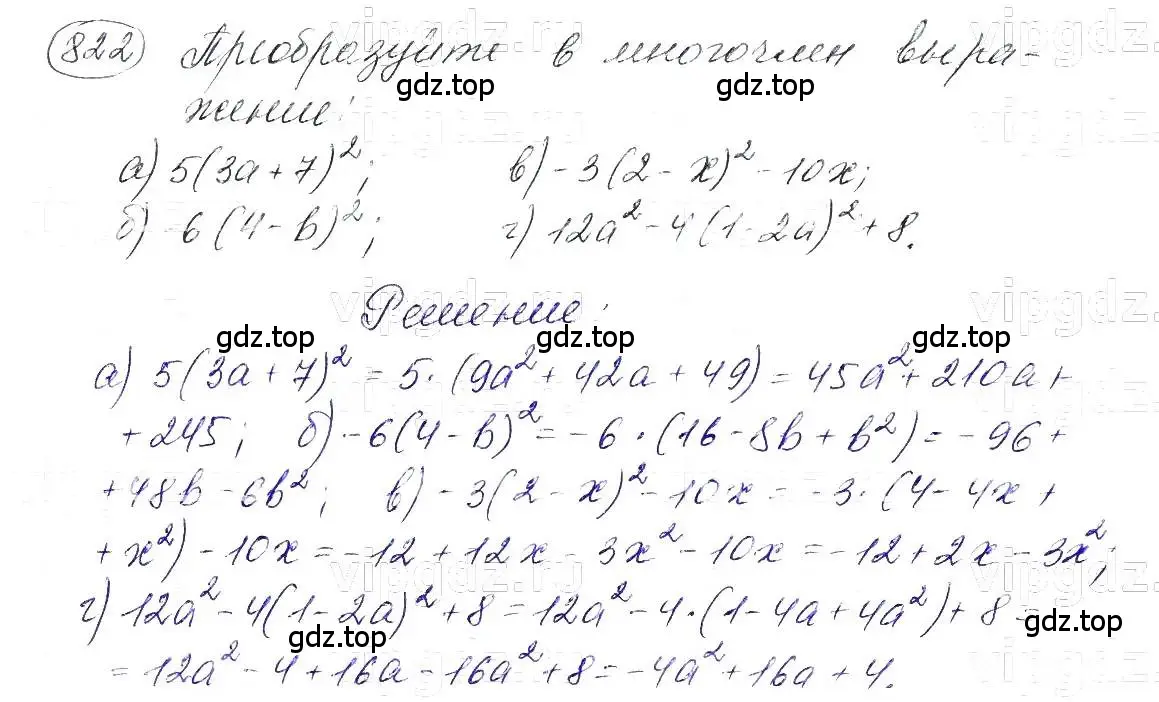 822 Преобразуйте в многочлен выра-
жение:
а) 5(3a + 7)²; в) -3(2 - x)² - 10x;
б) -6(4 - b)²; г) 12a² - 4(1 - 2a)² + 8.
Решение:
а) 5(3a + 7)² = 5 · (9a² + 42a + 49) = 45a² + 210a +
+ 245; б) -6(4 - b)² = -6 · (16 - 8b + b²) = -96 +
+ 48b - 6b²; в) -3(2 - x)² - 10x = -3 · (4 - 4x +
+ x²) - 10x = -12 + 12x - 3x² - 10x = -12 + 2x - 3x²;
г) 12a² - 4(1 - 2a)² + 8 = 12a² - 4 · (1 - 4a + 4a²) + 8 =
= 12a² - 4 + 16a - 16a² + 8 = -4a² + 16a + 4.
gdz.top
gdz.top
gdz.top
gdz.top
gdz.top
gdz.top
gdz.top
gdz.top